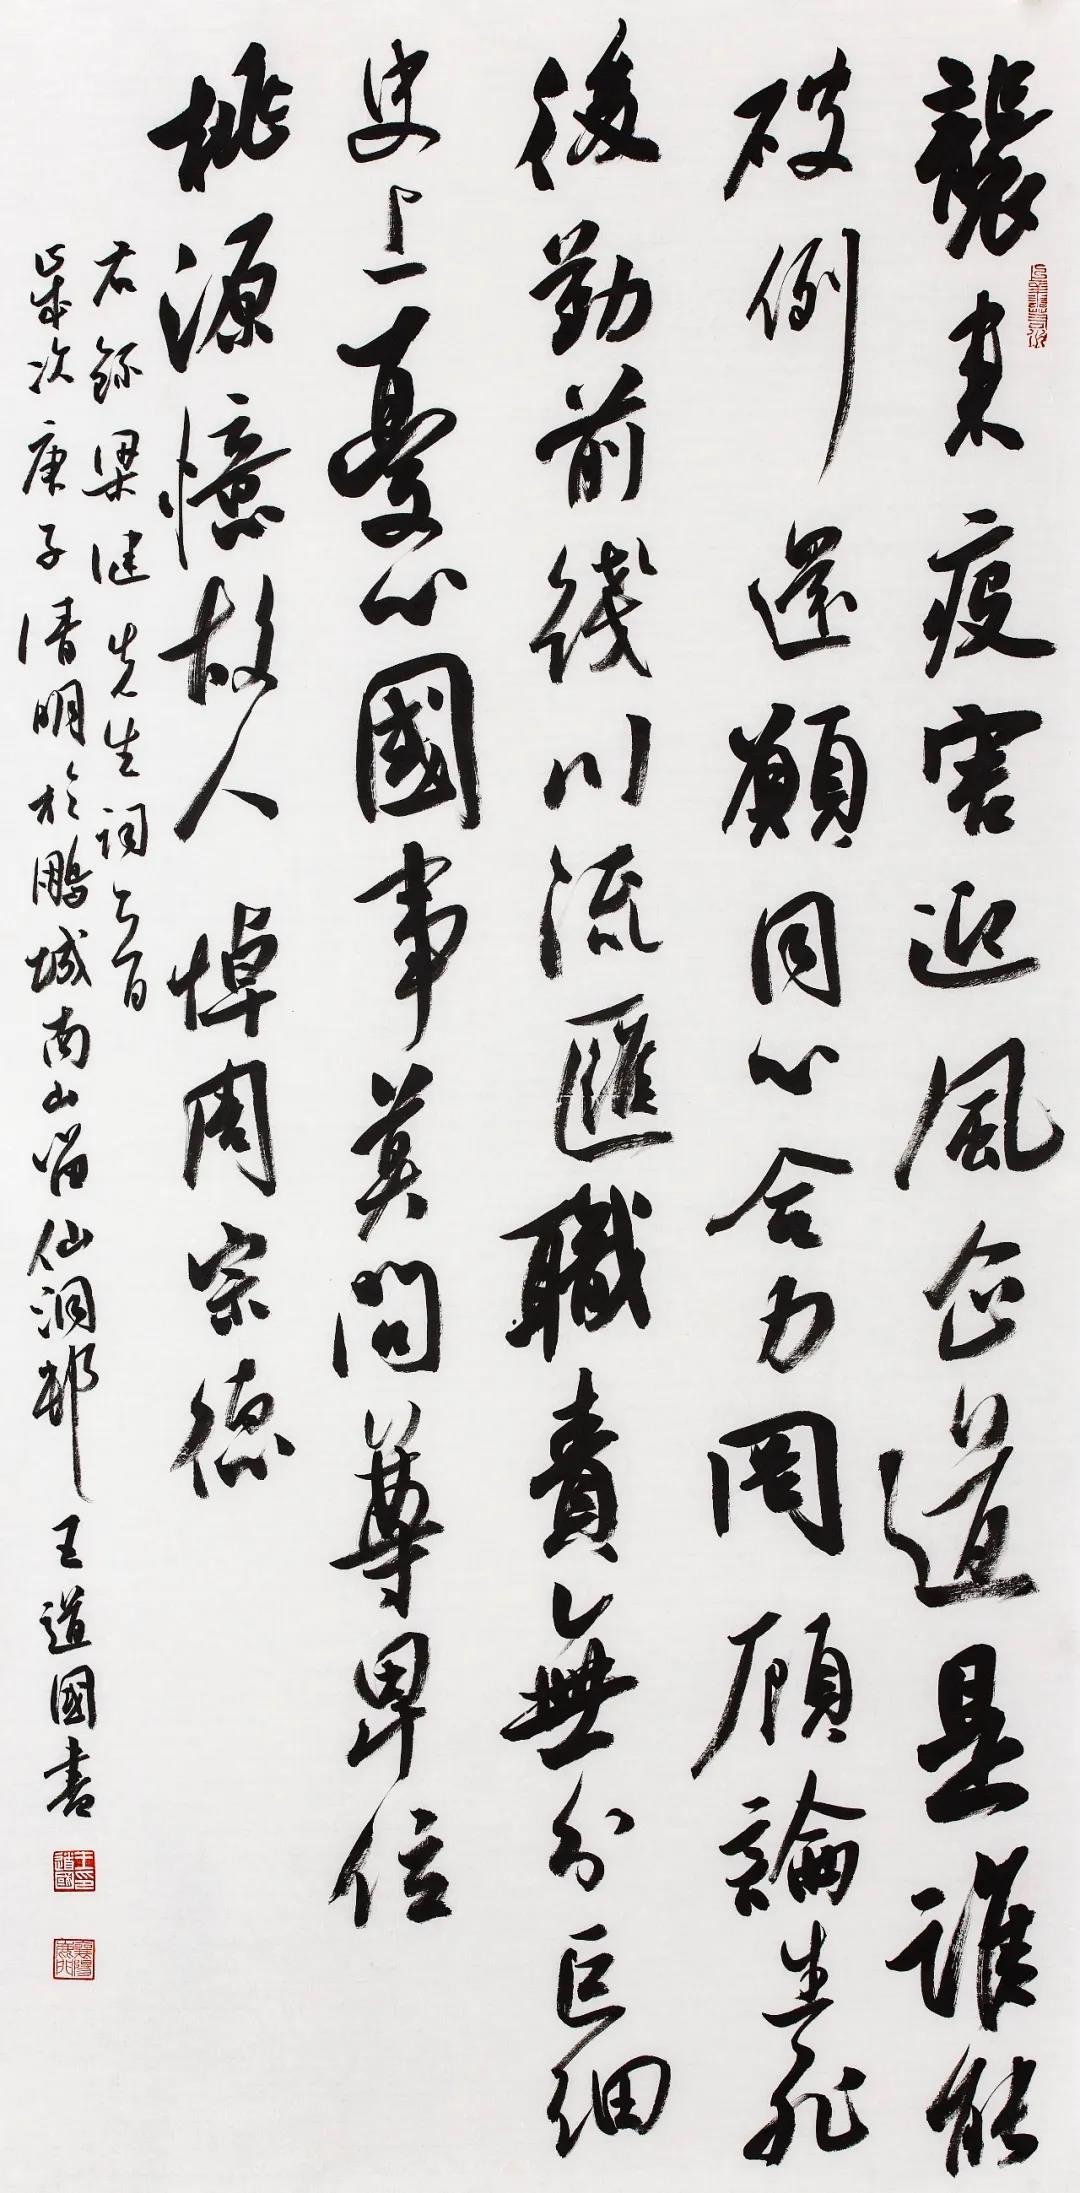 襲来疫害迎風企道是誰能
破例還願同心合力罔顧論生死
後勤前綫川流匯職責無分巨細
史上憂心國事莫問尊卑位
桃源憶故人 悼周宗德
右錄梁健先生詞一首
歲次庚子清明於鵬城南山留仙洞邨 王道國書
王道國印